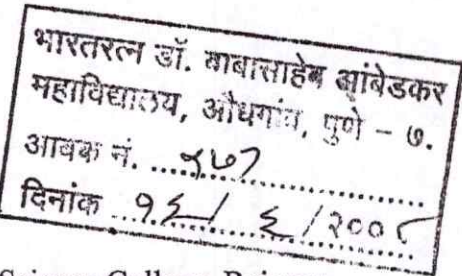 भारतरत्न डॉ. बाबासाहेब आंबेडकर
महाविद्यालय, औधगांव, पुणे – ७.
आवक नं. ....................
दिनांक १६/ ६/२००८
Science College